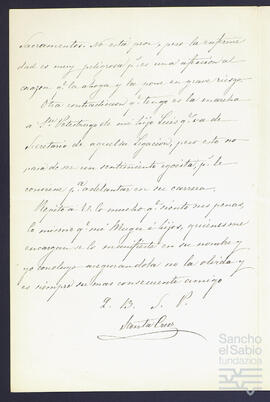 Sacramentos. No está peor, pero la enferme
dad es muy peligrosa pr. es una afeccion al
corazon qe. la ahoga y la pone en grave riesgo.
Otra contradiccion qe. tengo es la marcha
a Sn. Petersburgo de mi hijo Luis qe. va de
Secretario de aquella Legacion, pero esto no
pasa de ser un sentimiento egoista, p. le
conviene pa. adelantar en su carrera.
Repito a V. lo mucho qe. siento sus penas,
lo mismo qe. mi Muger é hijos, quienes me
encargan se lo manifieste en su nombre y
yo concluyo asegurandola no la olvida y
es siempre su mas consecuente amigo
Q. B. S. P.
Santa Cruz
Sancho
el Sabio
fundazioa